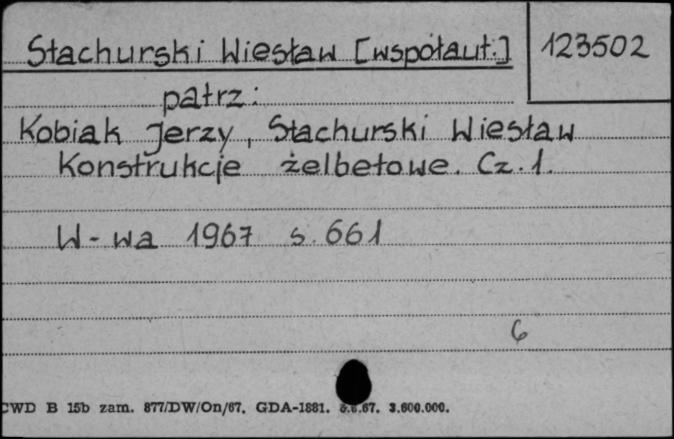 Stachurski Wiesław [współaut.] 123502
patrz:
Kobiak Jerzy, Stachurski Wiesław
Konstrukcje żelbetowe. Cz. 1.
W-wa 1967 s. 661
6
CWD B 15b zam. 877/DW/On/67. GDA-1881. 67. 3.600.000.